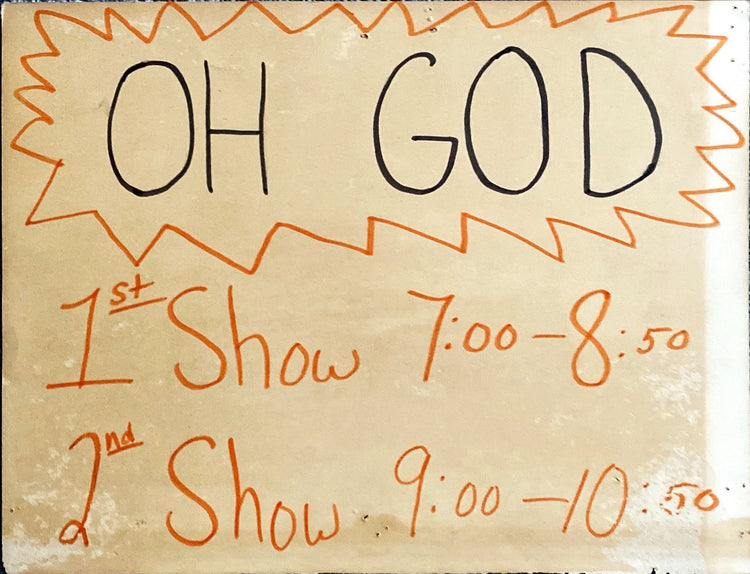 OH GOD
1st Show 7:00-8:50
2nd Show 9:00-10:50